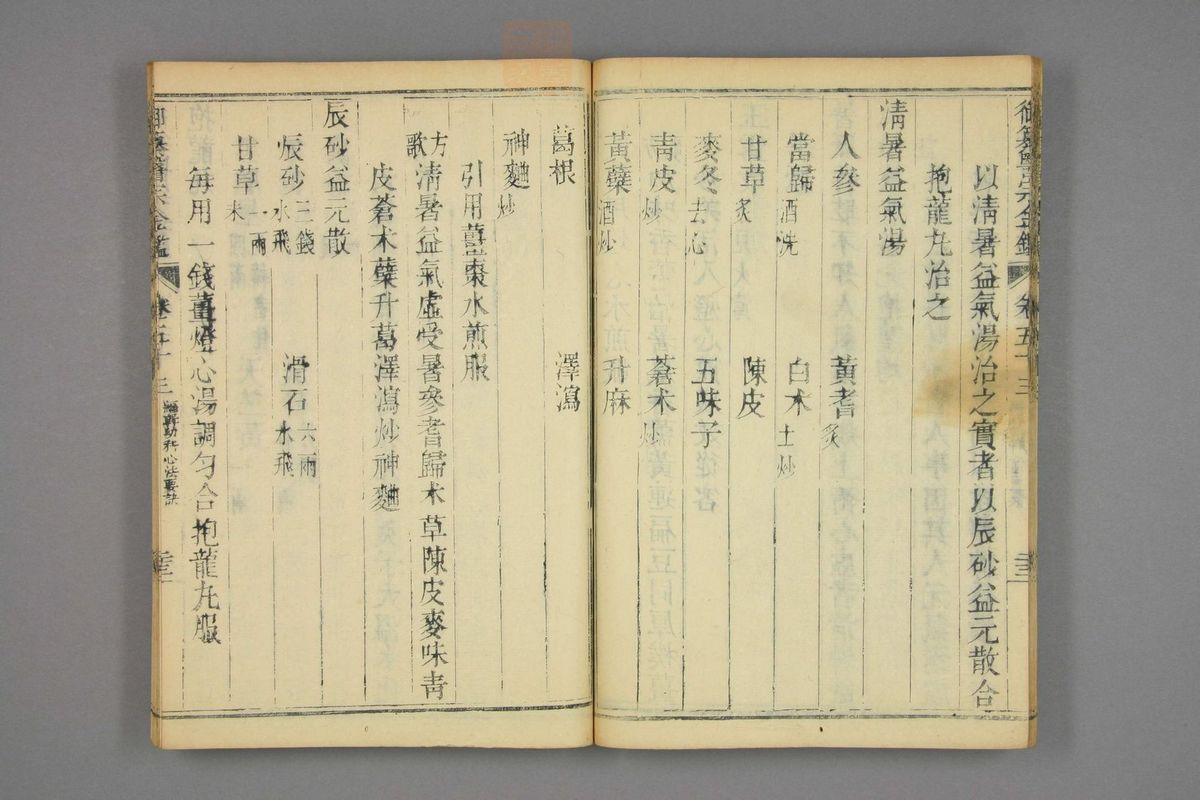 御纂醫宗金鑑 卷五十三
以淸暑益氣湯治之實者以辰砂益元散合
抱龍丸治之
淸暑益氣湯
人參 黃耆炙
當歸酒洗 白朮土炒
甘草炙 陳皮
麥冬去心 五味子
靑皮炒 蒼朮炒
黃蘗酒炒 升麻
葛根 澤瀉
神麯炒
引用薑棗水煎服
方歌 淸暑益氣虛受暑參耆歸朮草陳皮麥味靑
皮蒼朮蘗升葛澤瀉炒神麯
辰砂益元散
辰砂三錢水飛 滑石六兩水飛
甘草一兩末
每用一錢薑燈心湯調勻合抱龍丸服
御纂醫宗金鑑 卷五十三 編輯幼科心法要訣